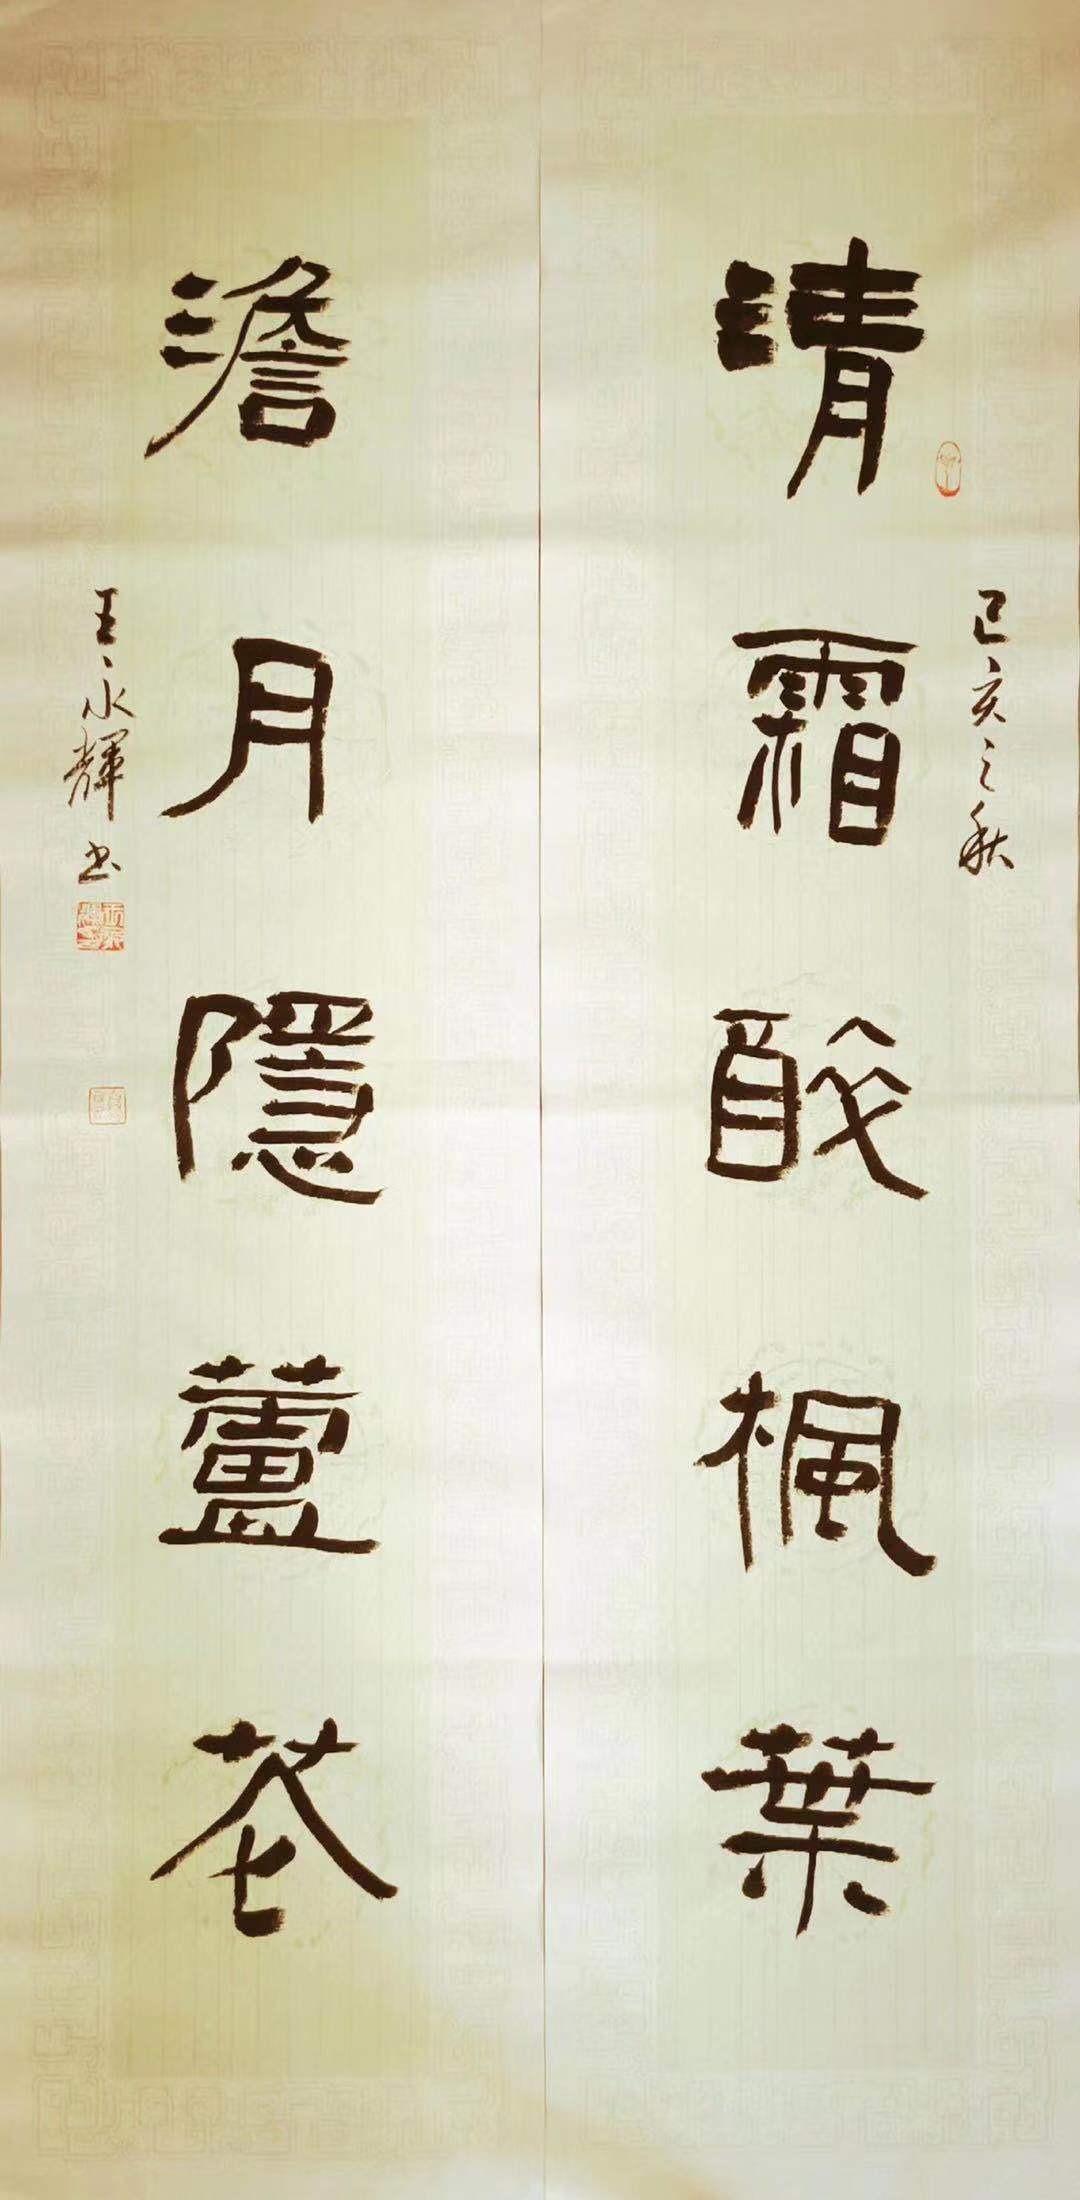 己亥之秋
清霜醉楓葉
澹月隱蘆花
王永輝书